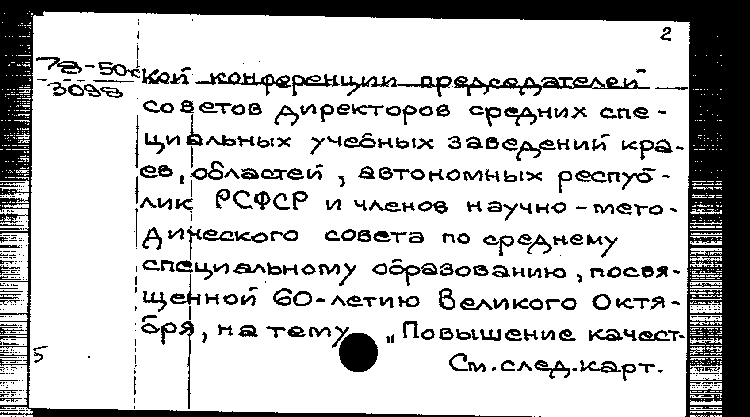 2
78-50
3098
кой конференции председателей
советов директоров средних спе-
циальных учебных заведений кра-
ев, областей, автономных респуб-
лик РСФСР и членов научно-мето-
дического совета по среднему
специальному образованию, посвя-
щенной 60-летию Великого Октя-
бря, на тему „Повышение качест-
5
См.след.карт.